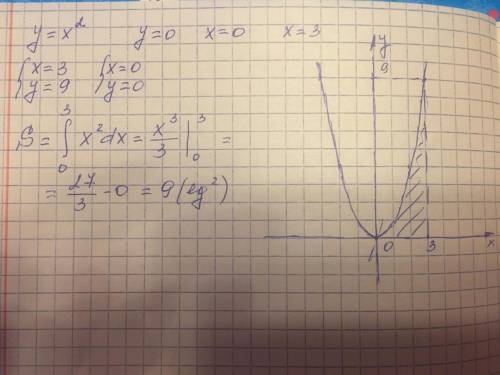 y = x² y = 0 x = 0 x = 3
{x = 3 {x = 0
{y = 9 {y = 0
S = ∫₀³ x² dx = x³/3 |₀³ =
= 27/3 - 0 = 9 (eg²)
y
9
0 3 x